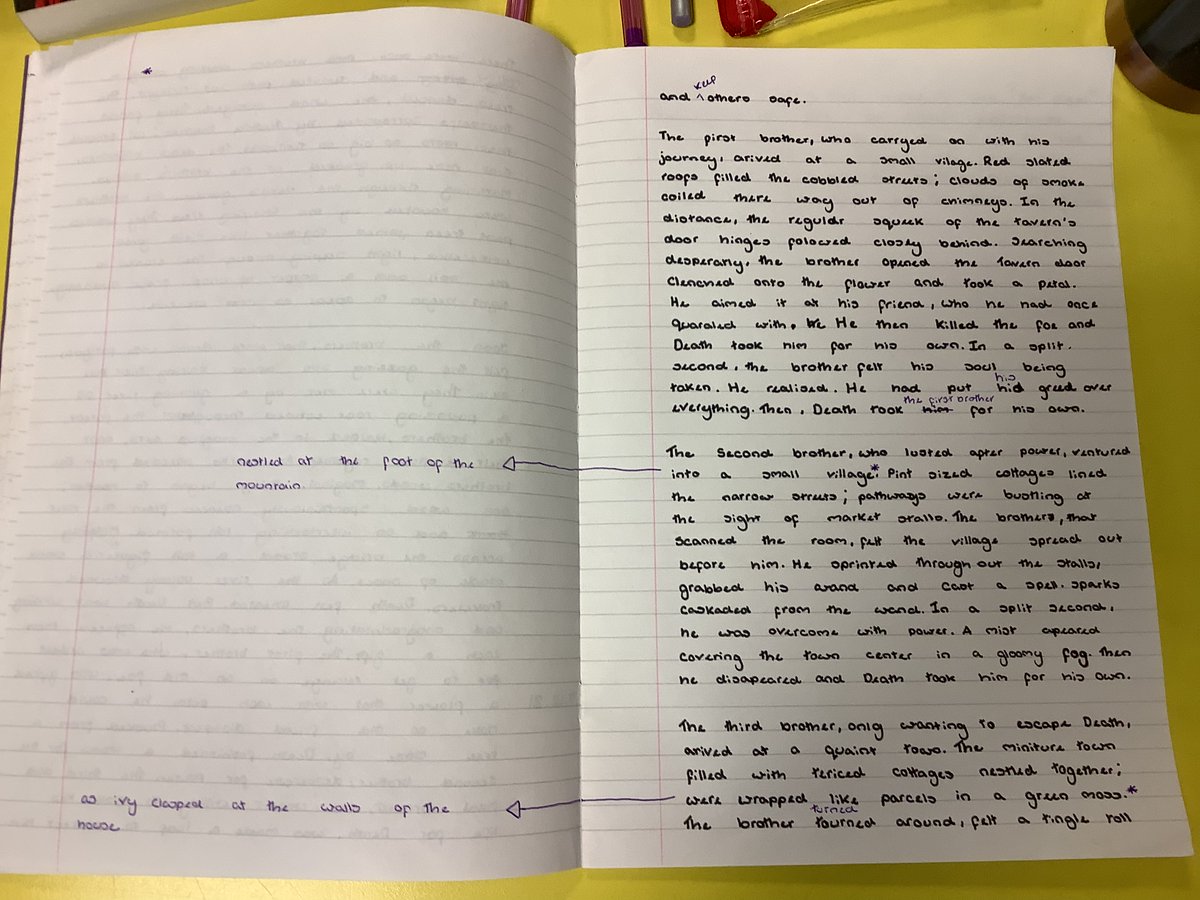 *
nestled at the foot of the
mountain.
as ivy clasped at the walls of the
house
keep
and ^ others safe.
The first brother, who carryed on with his
journey, arived at a small vilage. Red slated
roofs filled the cobbled streets; clouds of smoke
coiled there way out of chimneys. In the
distance, the regular squeek of the tavern's
door hinges folowed closely behind. Searching
desperatly, the brother opened the tavern door
clenched onto the flower and took a petal.
He aimed it at his friend, who he had once
quaraled with. We He then killed the foe and
Death took him for his own. In a split
second, the brother felt his soul being
his
taken. He realised. He had put hid greed over
the first brother
everything. Then, Death took him for his own.
The Second brother, who lusted after power, ventured
into a small village*. Pint sized cottages lined
the narrow streets; pathways were bustling at
the sight of market stalls. The brothers, that
scanned the room, felt the village spread out
before him. He sprinted through out the stalls,
grabbed his wand and cast a spell. Sparks
caskaded from the wand. In a split second,
he was overcome with power. A mist apeared
covering the town center in a gloomy fog. Then
he disapeared and Death took him for his own.
The third brother, only wanting to escape Death,
arived at a quaint town. The miniture town
filled with tericed cottages nestled together;
were wrapped like parcels in a green moss.*
turned
The brother tourned around, felt a tingle roll